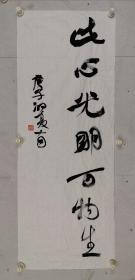 此心光明万物生
庚子初夏